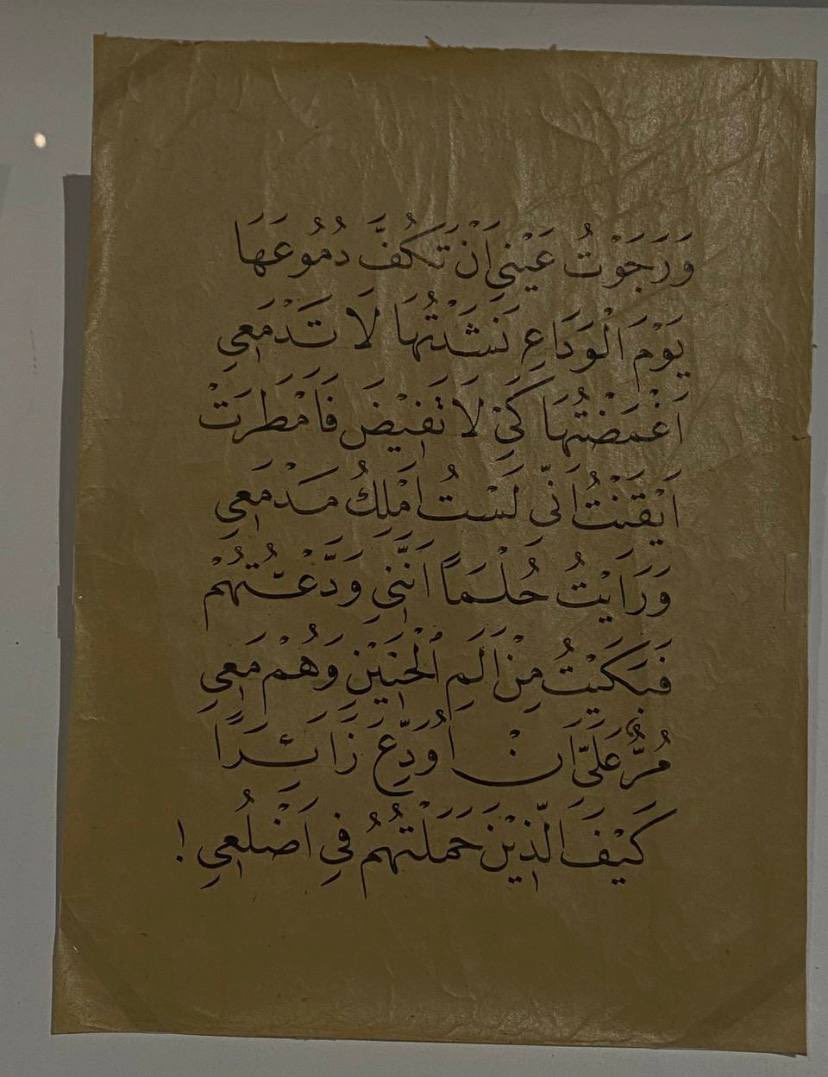 وَرَجَوْتُ عَيْنِي اَنْ تَكُفَّ دُمُوعَهَا
يَوْمَ الْوَدَاعِ نَشَدْتُهَا لَا تَدْمَعِي
اَغْمَضْتُهَا كَيْ لَا تَفِيْضَ فَاَمْطَرَتْ
اَيْقَنْتُ اَنِّي لَسْتُ اَمْلِكُ مَدْمَعِي
وَرَاَيْتُ حُلْمَاً اَنَّنِي وَدَّعْتُهُمْ
فَبَكَيْتُ مِنْ اَلَمِ الْحَنِيْنِ وَهُمْ مَعِي
مُرٌّ عَلَيَّ اَنْ اُوَدِّعَ زَائِرًا
كَيْفَ الَّذِيْنَ حَمَلْتُهُمْ فِي اَضْلُعِي !